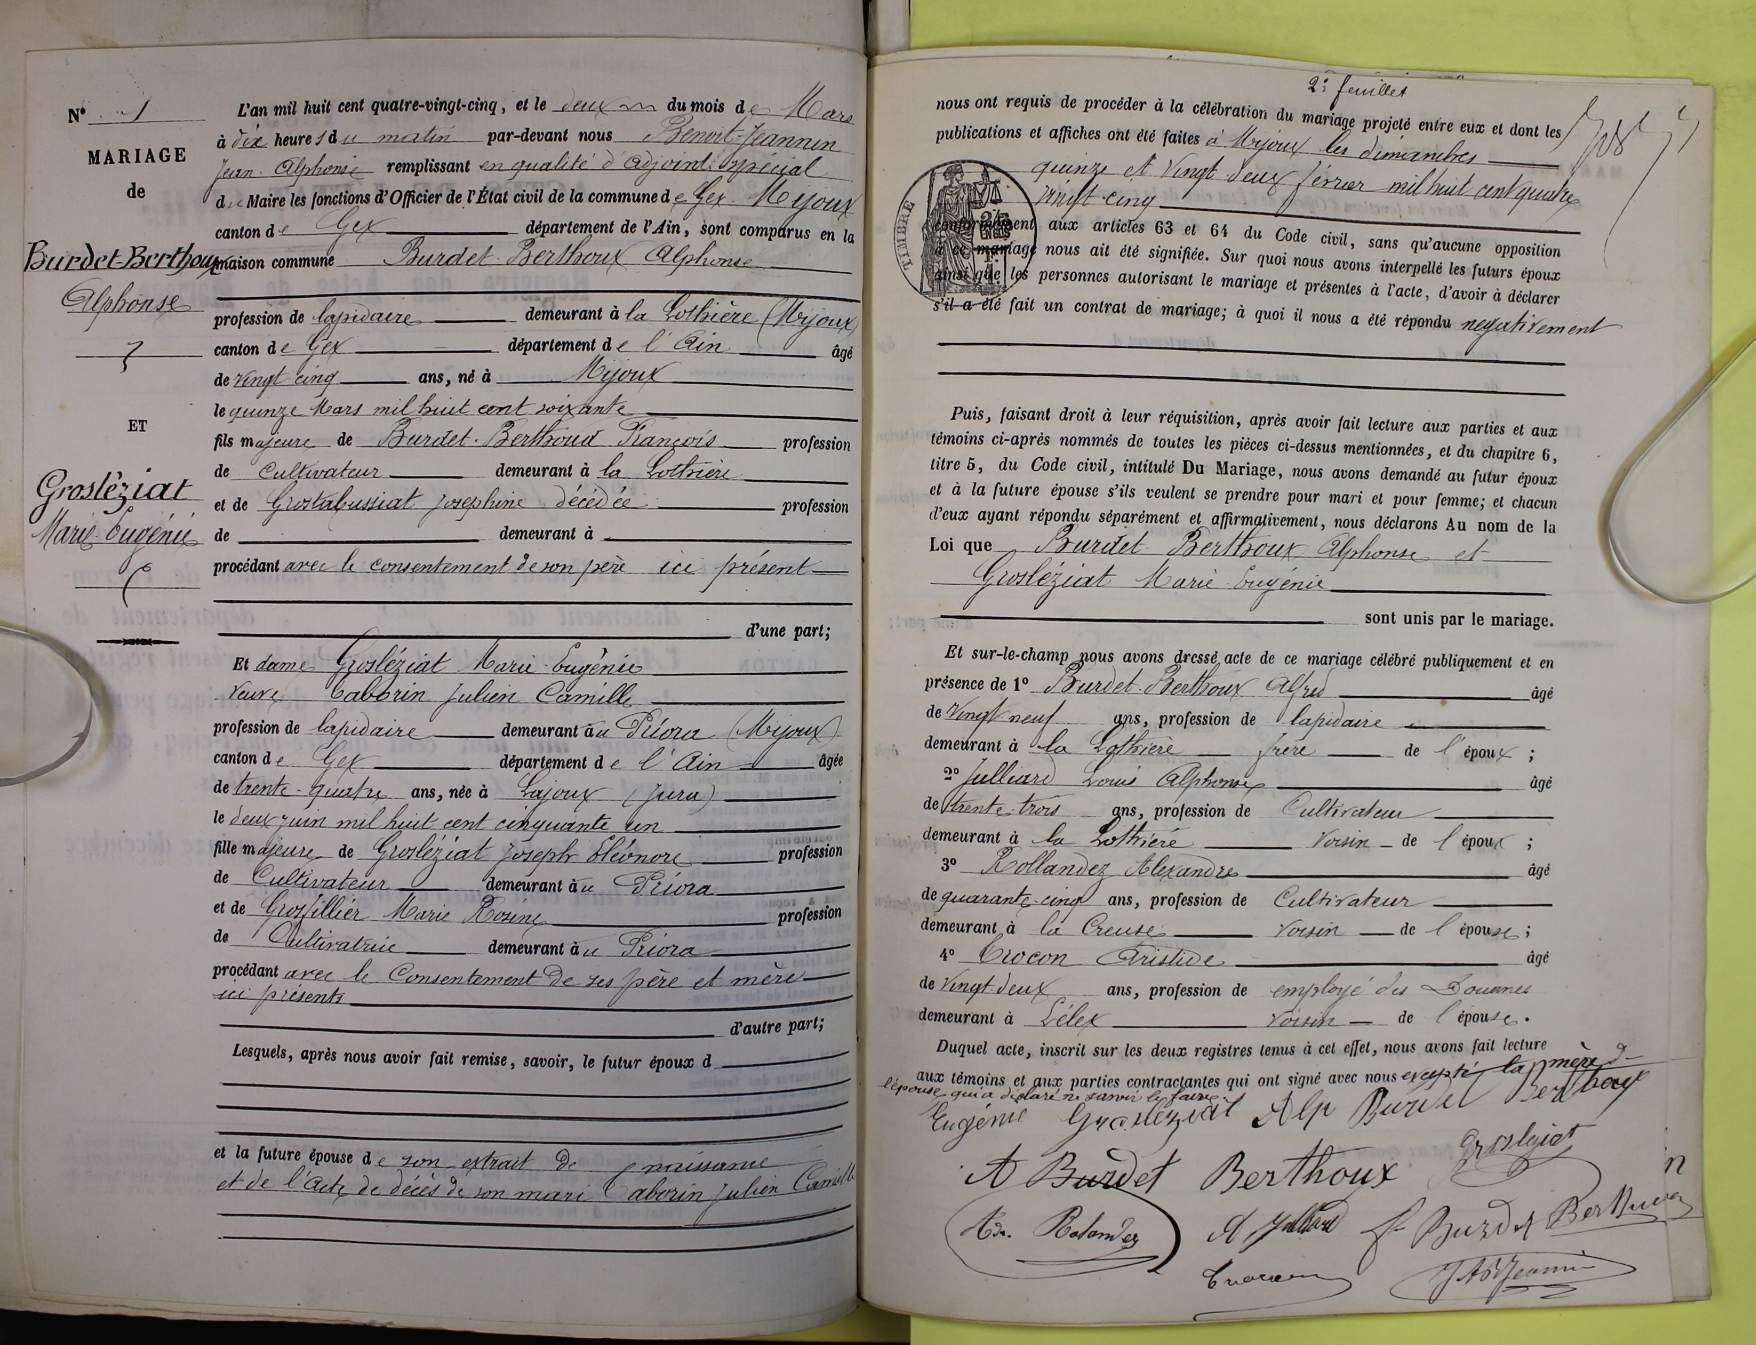 N° 1
MARIAGE
de
Burdet-Berthoux
Alphonse
ET
Grosléziat
Marie-Eugénie
L'an mil huit cent quatre-vingt-cinq, et le deux du mois de Mars
à dix heures du matin par-devant nous Benoit-Jeannin
Jean Alphonse remplissant en qualité d'adjoint spécial
du Maire les fonctions d'Officier de l'État civil de la commune de Gex-Mijoux
canton de Gex département de l'Ain, sont comparus en la
maison commune Burdet-Berthoux Alphonse
profession de lapidaire demeurant à la Lothière (Mijoux)
canton de Gex département de l'Ain âgé
de vingt-cinq ans, né à Mijoux
le quinze Mars mil huit cent soixante
fils majeure de Burdet-Berthoud François profession
de Cultivateur demeurant à la Lothière
et de Joséphine décédée profession
de demeurant à
procédant avec le consentement de son père ici présent
d'une part;
Et dame Grosléziat Marie-Eugénie
veuve Caborin Julien Camille
profession de lapidaire demeurant au Priora (Mijoux)
canton de Gex département de l'Ain âgée
de trente-quatre ans, née à Lajoux (Jura)
le deux juin mil huit cent cinquante un
fille majeure de Grosléziat Joseph Eléonore profession
de Cultivateur demeurant au Priora
et de Grosfillier Marie Rosine profession
de Cultivatrice demeurant au Priora
procédant avec le Consentement de ses père et mère
ici présents
d'autre part;
Lesquels, après nous avoir fait remise, savoir, le futur époux d
et la future épouse de son extrait de naissance
et de l'acte de décès de son mari Caborin Julien Camille
2e feuillet
nous ont requis de procéder à la célébration du mariage projeté entre eux et dont les
publications et affiches ont été faites à Mijoux les dimanches
quinze et vingt deux février mil huit cent quatre
vingt-cinq
TIMBRE
conformément aux articles 63 et 64 du Code civil, sans qu'aucune opposition
à ce mariage nous ait été signifiée. Sur quoi nous avons interpellé les futurs époux
ainsi que les personnes autorisant le mariage et présentes à l'acte, d'avoir à déclarer
s'il a été fait un contrat de mariage; à quoi il nous a été répondu négativement
Puis, faisant droit à leur réquisition, après avoir fait lecture aux parties et aux
témoins ci-après nommés de toutes les pièces ci-dessus mentionnées, et du chapitre 6,
titre 5, du Code civil, intitulé Du Mariage, nous avons demandé au futur époux
et à la future épouse s'ils veulent se prendre pour mari et pour femme; et chacun
d'eux ayant répondu séparément et affirmativement, nous déclarons Au nom de la
Loi que Burdet Berthoux Alphonse et
Grosléziat Marie Eugénie
sont unis par le mariage.
Et sur-le-champ nous avons dressé acte de ce mariage célébré publiquement et en
présence de 1° Burdet-Berthoux Alfred âgé
de vingt neuf ans, profession de lapidaire
demeurant à la Lothière frère de l'époux ;
2° Julliard Louis Alphonse âgé
de trente-trois ans, profession de Cultivateur
demeurant à la Lothière voisin de l'époux ;
3° Rollandez Alexandre âgé
de quarante-cinq ans, profession de Cultivateur
demeurant à la Creuse voisin de l'épouse ;
4° Crocon Aristide âgé
de vingt-deux ans, profession de employé des Douanes
demeurant à Lélex voisin de l'épouse.
Duquel acte, inscrit sur les deux registres tenus à cet effet, nous avons fait lecture
aux témoins et aux parties contractantes qui ont signé avec nous excepté la mère de
l'épouse qui a déclaré ne savoir le faire
Eugénie Grosléziat Alp Burdet Berthoux
A Burdet Berthoux Grosléziat
Ax. Rolandez A Julliard f Burdet Berthoux
Crocon JABJeannin